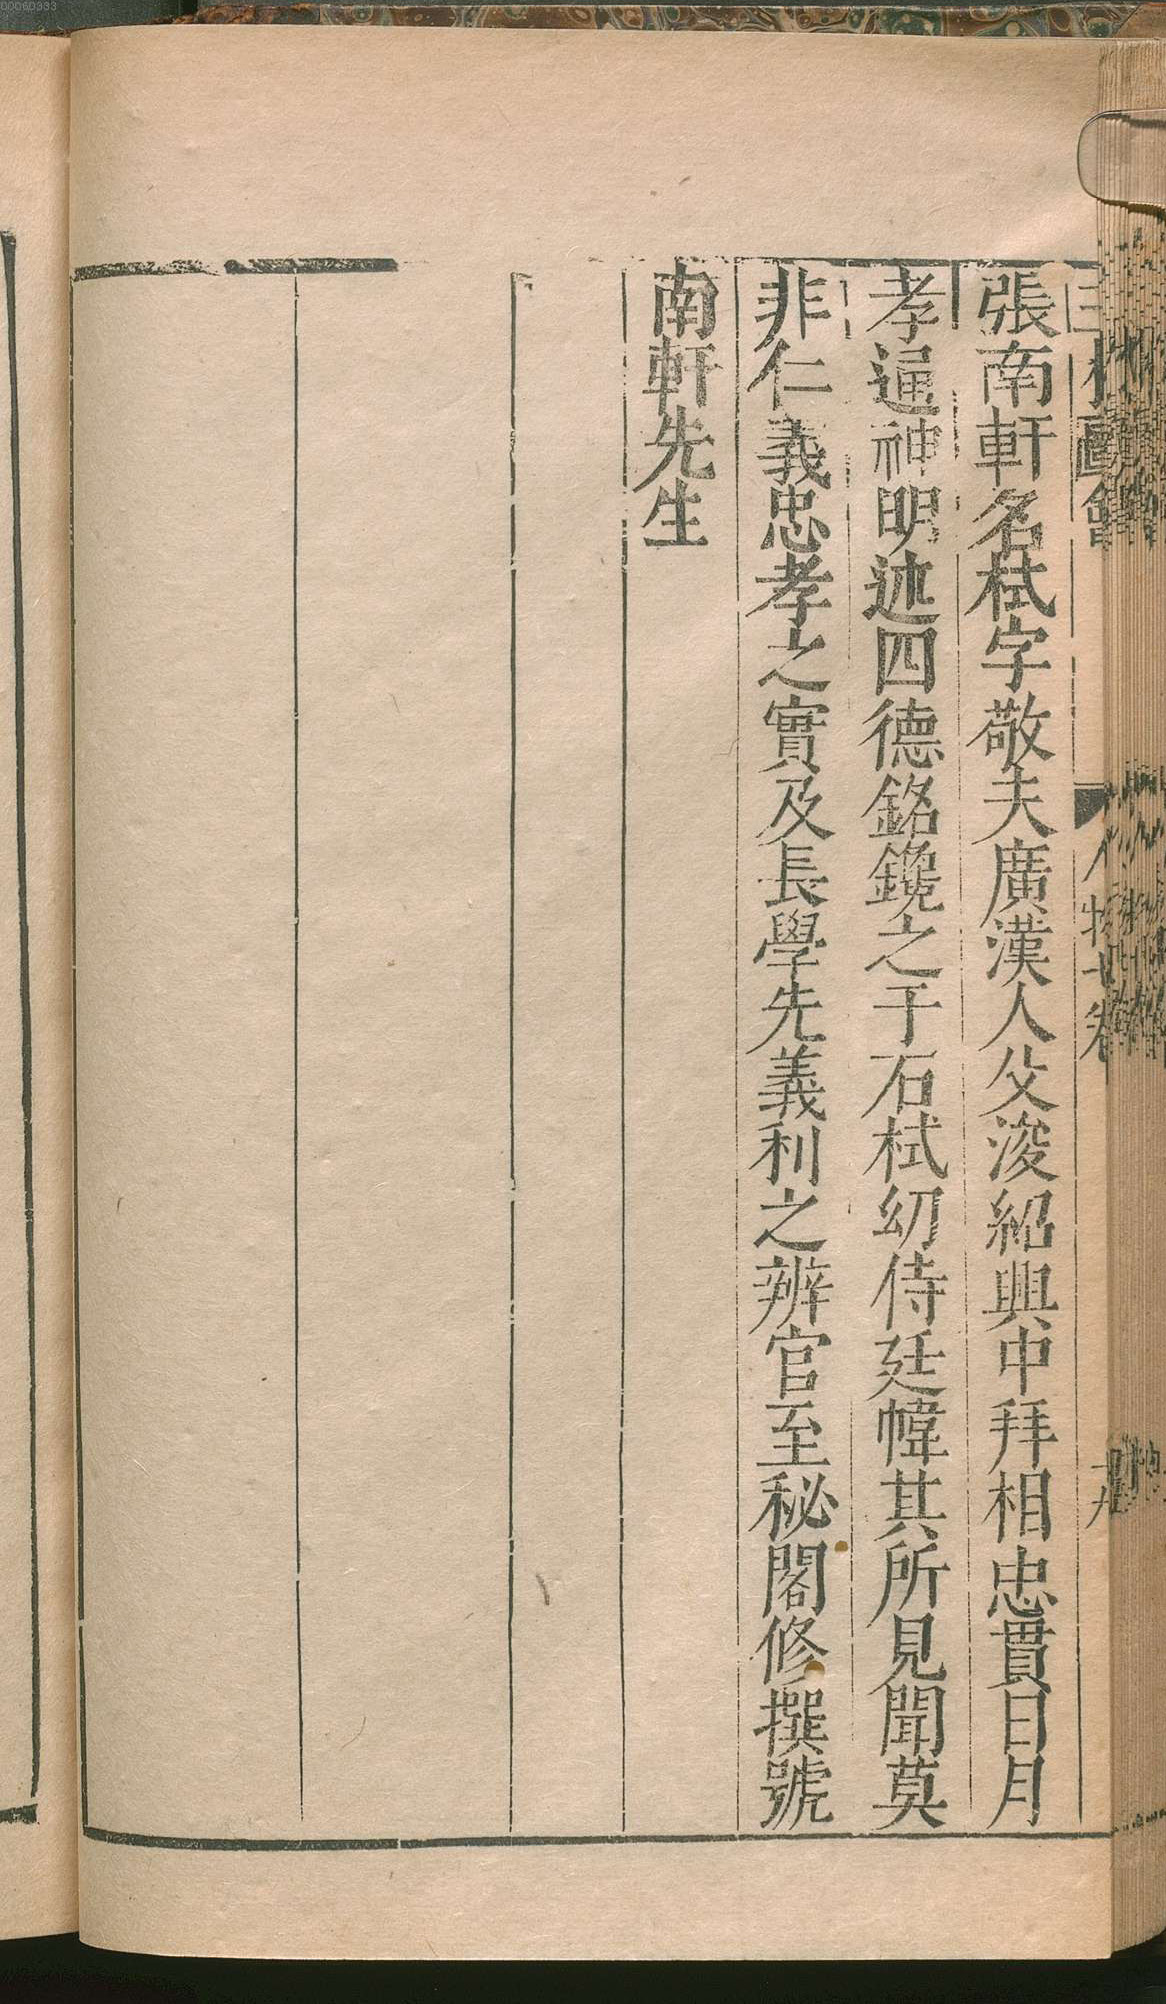 張南軒名栻字敬夫廣漢人父浚紹興中拜相忠貫日月
孝逼神明述四德銘鑱之于石栻幼侍廷幃其所見聞莫
非仁義忠孝之實及長學先義利之辨官至秘閣修撰號
南軒先生
00060333